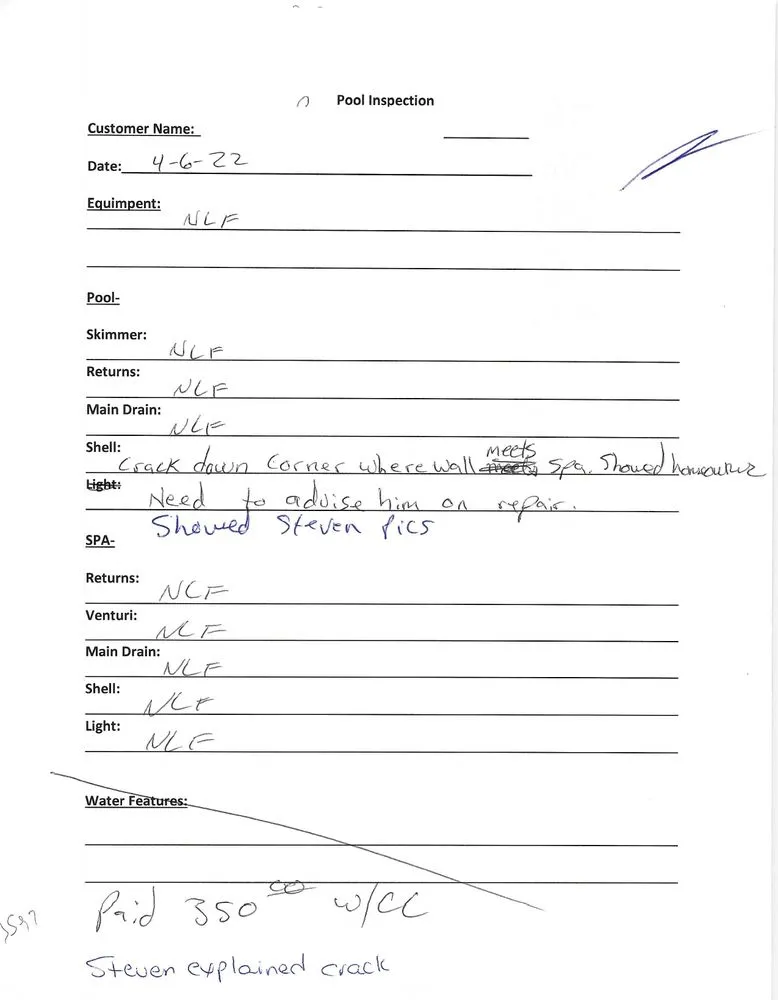 Pool Inspection
Customer Name:
Date: 4-6-22
Equimpent:
NLF
Pool-
Skimmer:
NLF
Returns:
NLF
Main Drain:
NLF
Shell:
Crack down corner where wall meets spa. Showed homeowner
Light:
Need to advise him on repair.
Showed Steven pics
SPA-
Returns:
NLF
Venturi:
NLF
Main Drain:
NLF
Shell:
NLF
Light:
NLF
Water Features:
Paid 350 00 w/CC
Steven explained crack